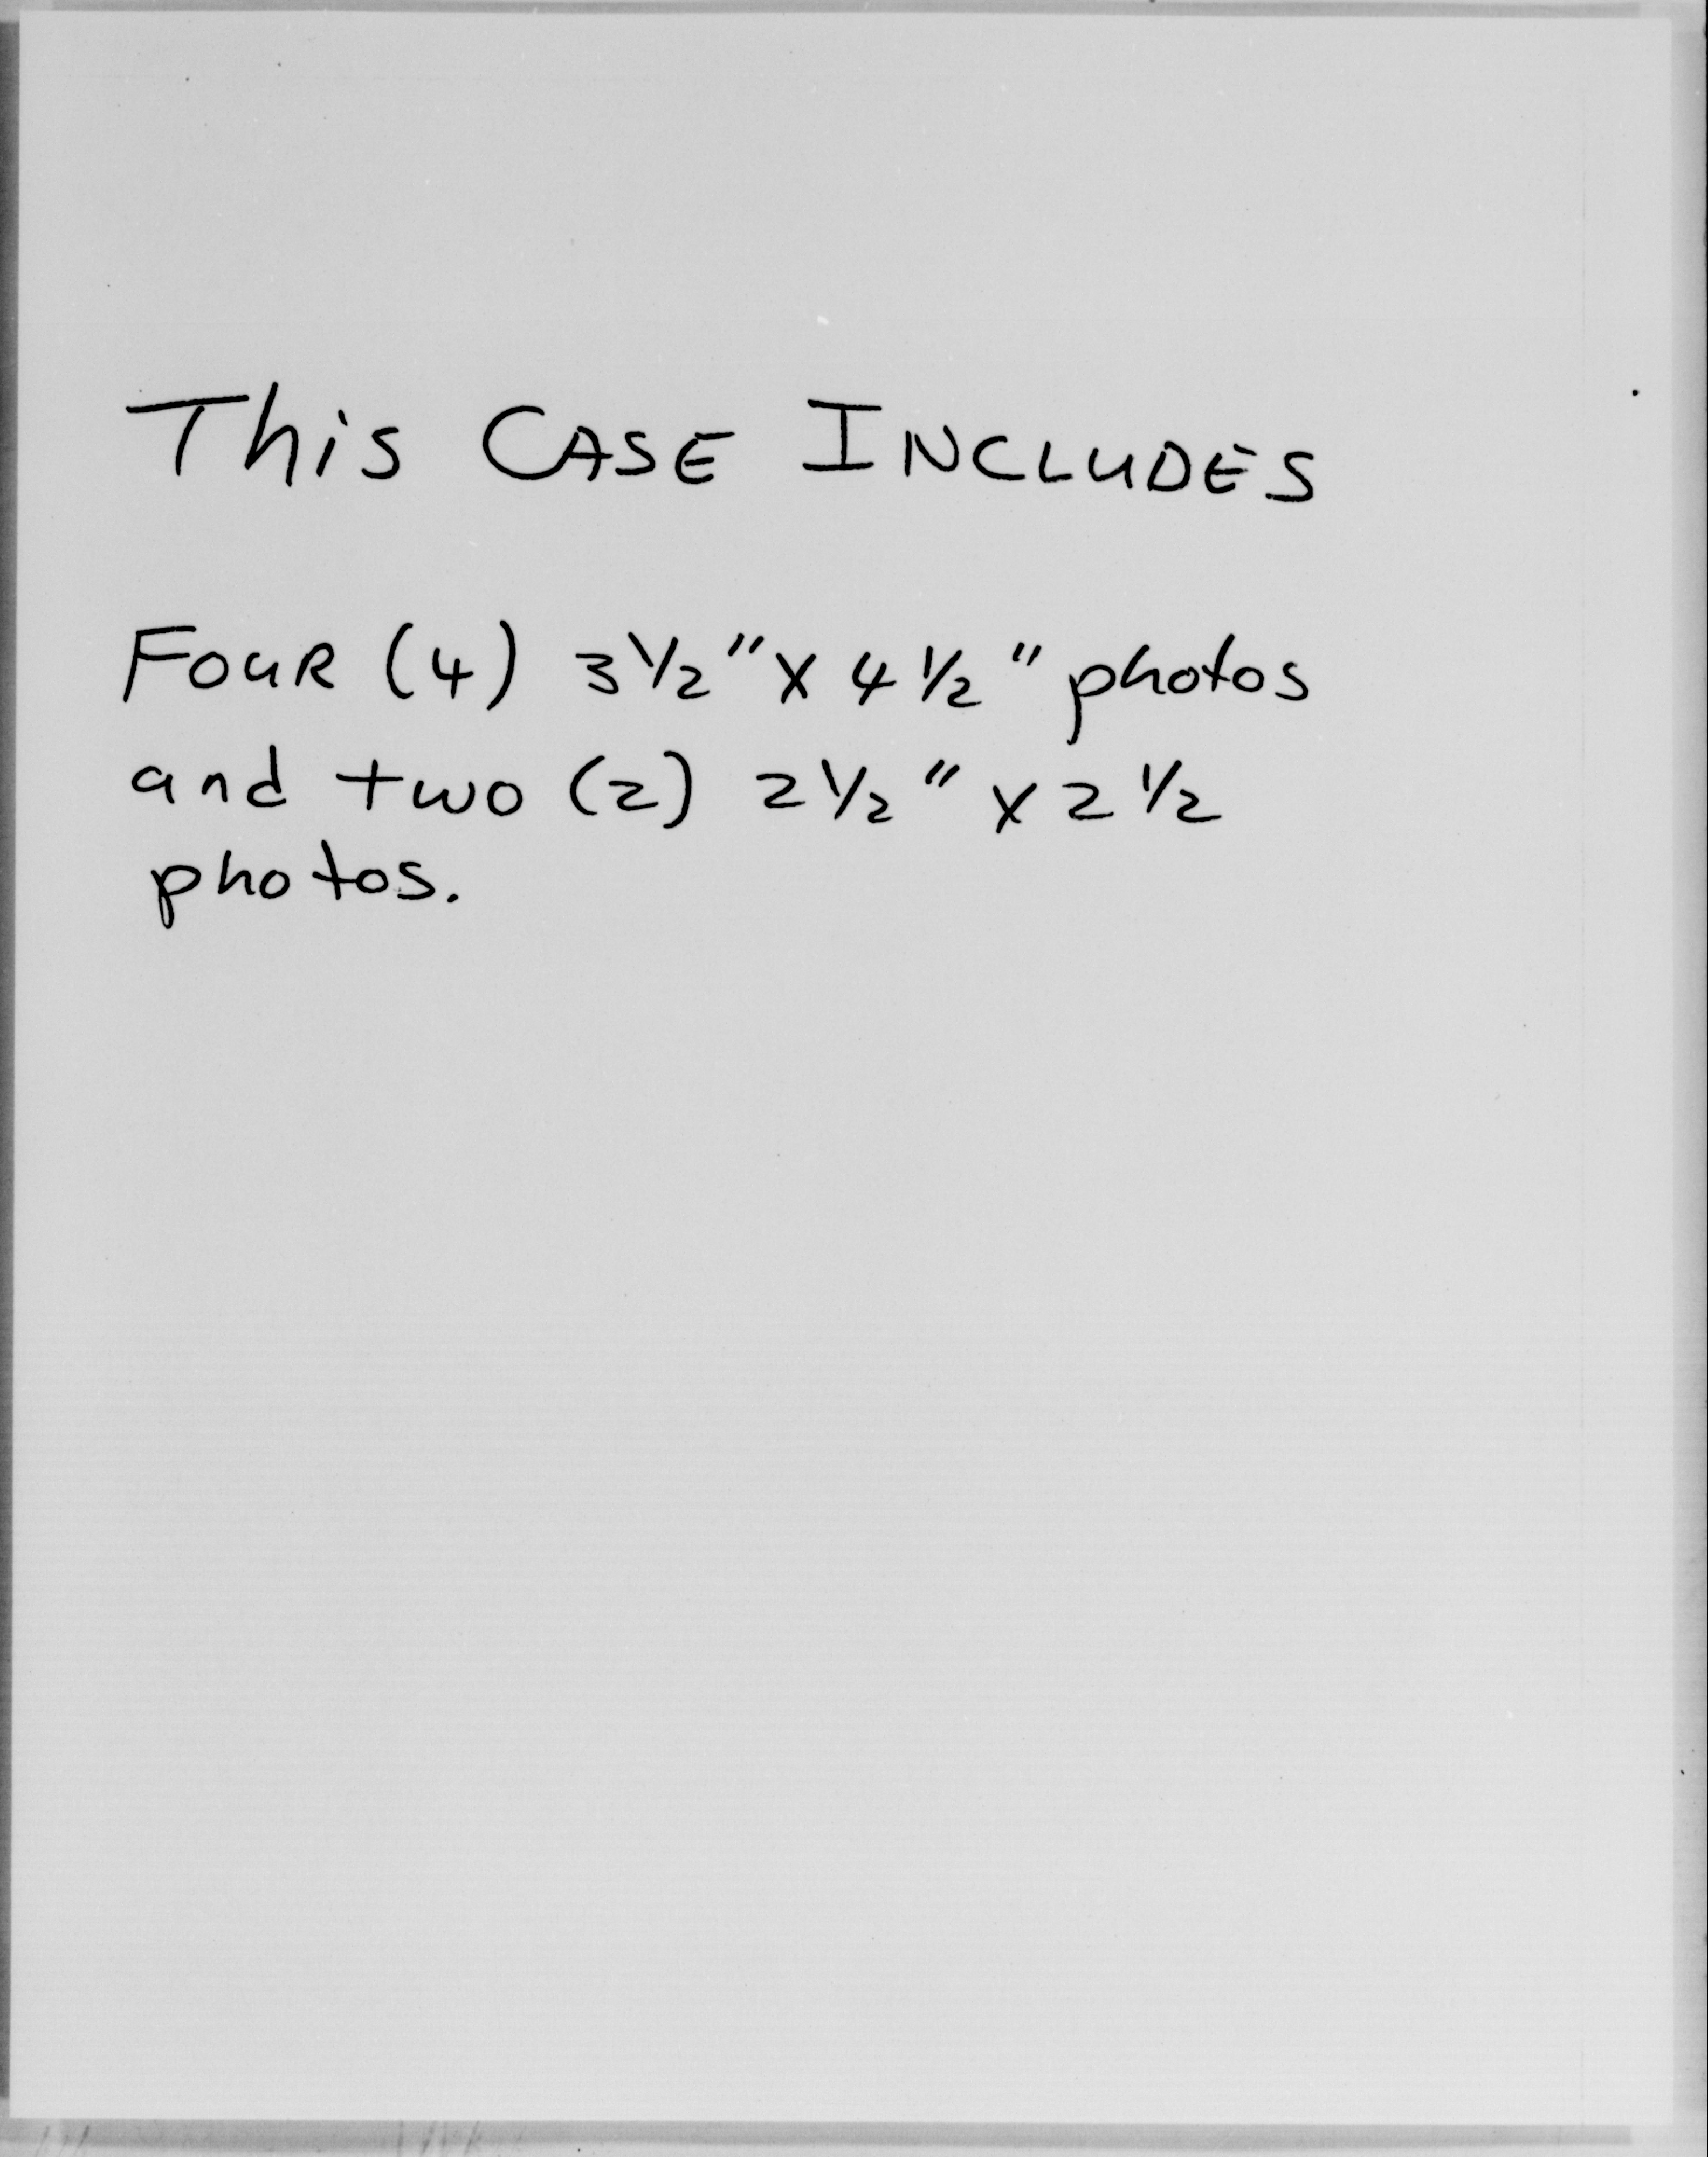 This CASE INCLUDES
FOUR (4) 3 1/2" X 4 1/2" photos
and two (2) 2 1/2" X 2 1/2
photos.